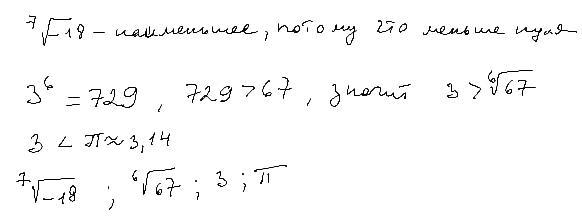 ⁷√-18 - наименьшее, потому что меньше нуля
3⁶ = 729, 729 > 67, значит 3 > ⁶√67
3 < π ≈ 3,14
⁷√-18 ; ⁶√67 ; 3 ; π